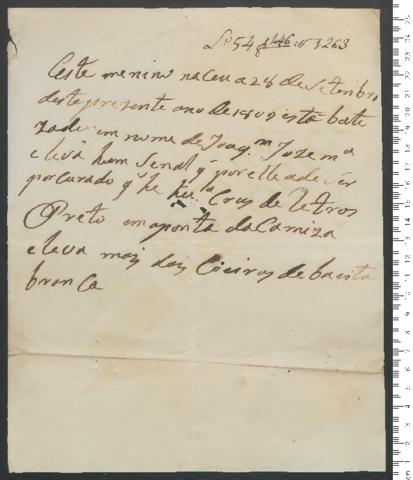 Lo 54 f 146 no 1263
Este menino naceu a 28 de Setenbro
deste prezente ano de 1809 está bate
zado em nome de Joaqm Joze ma
e leva hum Senal q por elle a de ser
porcurado q he hua Crus de Letros
Preto em aponta da Camiza
e leva mais dois Coeiros de baeta
branca